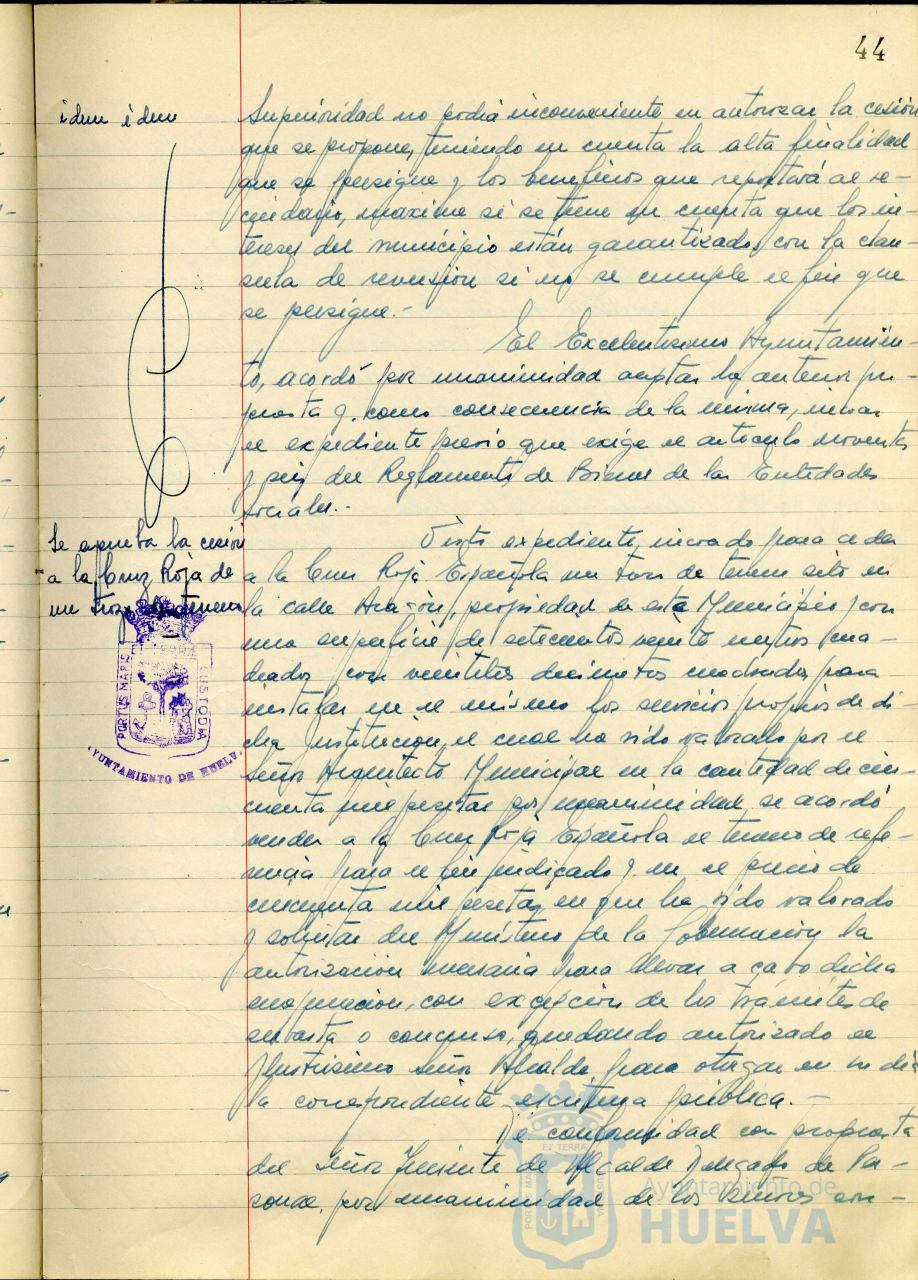 44
idem idem
Superioridad no podrá inconveniente en autorizar la cesión
que se propone, teniendo en cuenta la alta finalidad
que se persigue y los beneficios que reportará al ve-
cindario, maxime si se tiene en cuenta que los in-
tereses del municipio están garantizados con la clau-
sula de reversión si no se cumple el fin que
se persigue.-
El Excelentísimo Ayuntamien-
to, acordó por unanimidad aceptar la anterior pro-
puesta y, como consecuencia de la misma, incoar
el expediente previo que exige el artículo noventa
y seis del Reglamento de Bienes de las Entidades
Locales.-
Se aprueba la cesión
a la Cruz Roja de
un trozo de terreno
Visto expediente incoado para ceder
a la Cruz Roja Española un trozo de terreno sito en
la calle Aragón, propiedad de este Municipio, con
una superficie de setecientos veinte metros cua-
drados con veintitres decimetros cuadrados, para
instalar en el mismo los servicios propios de di-
cha Institución, el cual ha sido valorado por el
Señor Arquitecto Municipal en la cantidad de cin-
cuenta mil pesetas, por unanimidad, se acordó
vender a la Cruz Roja Española el terreno de refe-
rencia para el fin indicado y en el precio de
cincuenta mil pesetas en que ha sido valorado
y solicitar del Ministerio de la Gobernación la
autorización necesaria para llevar a cabo dicha
enajenación, con excepción de los trámites de
subasta o concurso, quedando autorizado el
Ilustrísimo Señor Alcalde para otorgar en su día
la correspondiente escritura pública.-
De conformidad con propuesta
del Señor Teniente de Alcalde Delegado de Per-
sonal, por unanimidad de los señores con-
PORTUS MARIS
ET TERRAE
CUSTODIA
AYUNTAMIENTO DE HUELVA
Ayuntamiento de
HUELVA